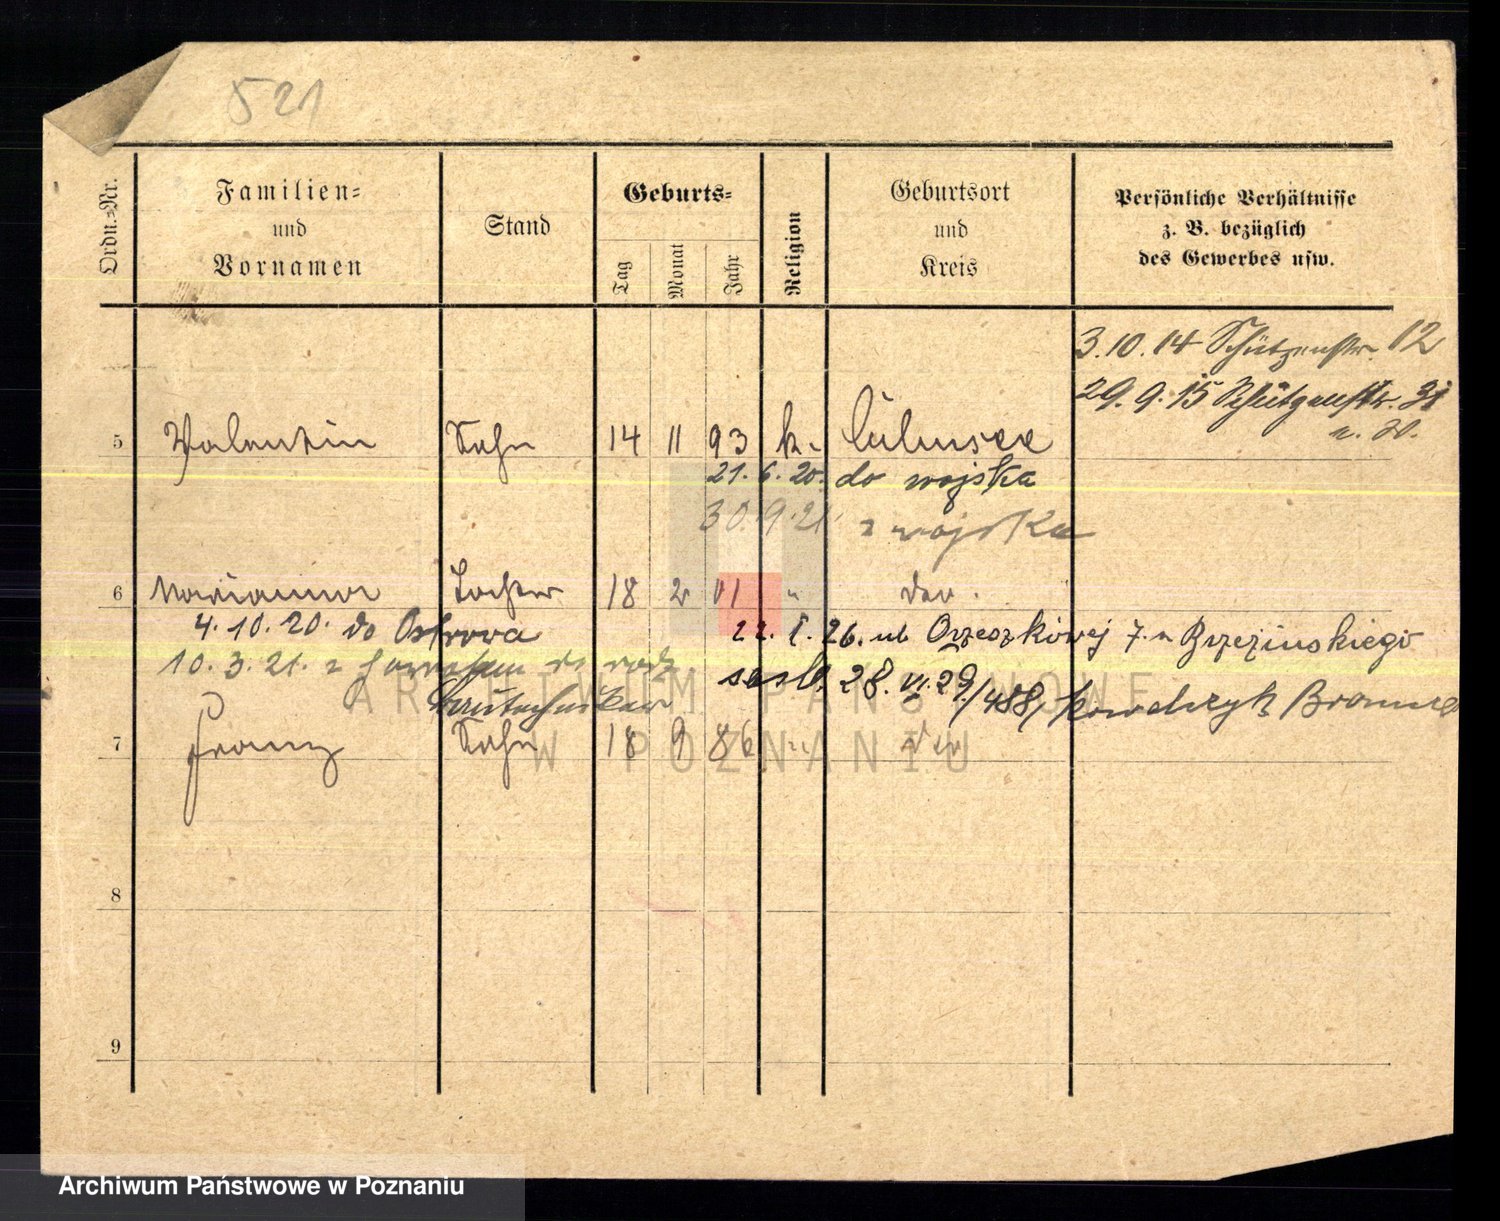 521
Ordn.-Nr.
Familien-
und
Vornamen
Stand
Geburts-
Tag
Monat
Jahr
Religion
Geburtsort
und
Kreis
Persönliche Verhältnisse
z. B. bezüglich
des Gewerbes usw.
3.10.14 Schützenstr. 12
29.9.15 Schützenstr. 31
5 Valentin Sohn 14 11 93 k.
21.6.20. do wojska
30.9.21 z wojska
6 Marianna Tochter 18 2 01 " 
4.10.20. do Ostrowa
22.I.26. ul Orzeszkowej 7. u Brzezinskiego
10.3.21. z
28.VI.29/488/ Kowalczyk
Bautechniker
7 Franz Sohn 18 9 86 "
8
9
ARCHIWUM PAŃSTWOWE
W POZNANIU
Archiwum Państwowe w Poznaniu